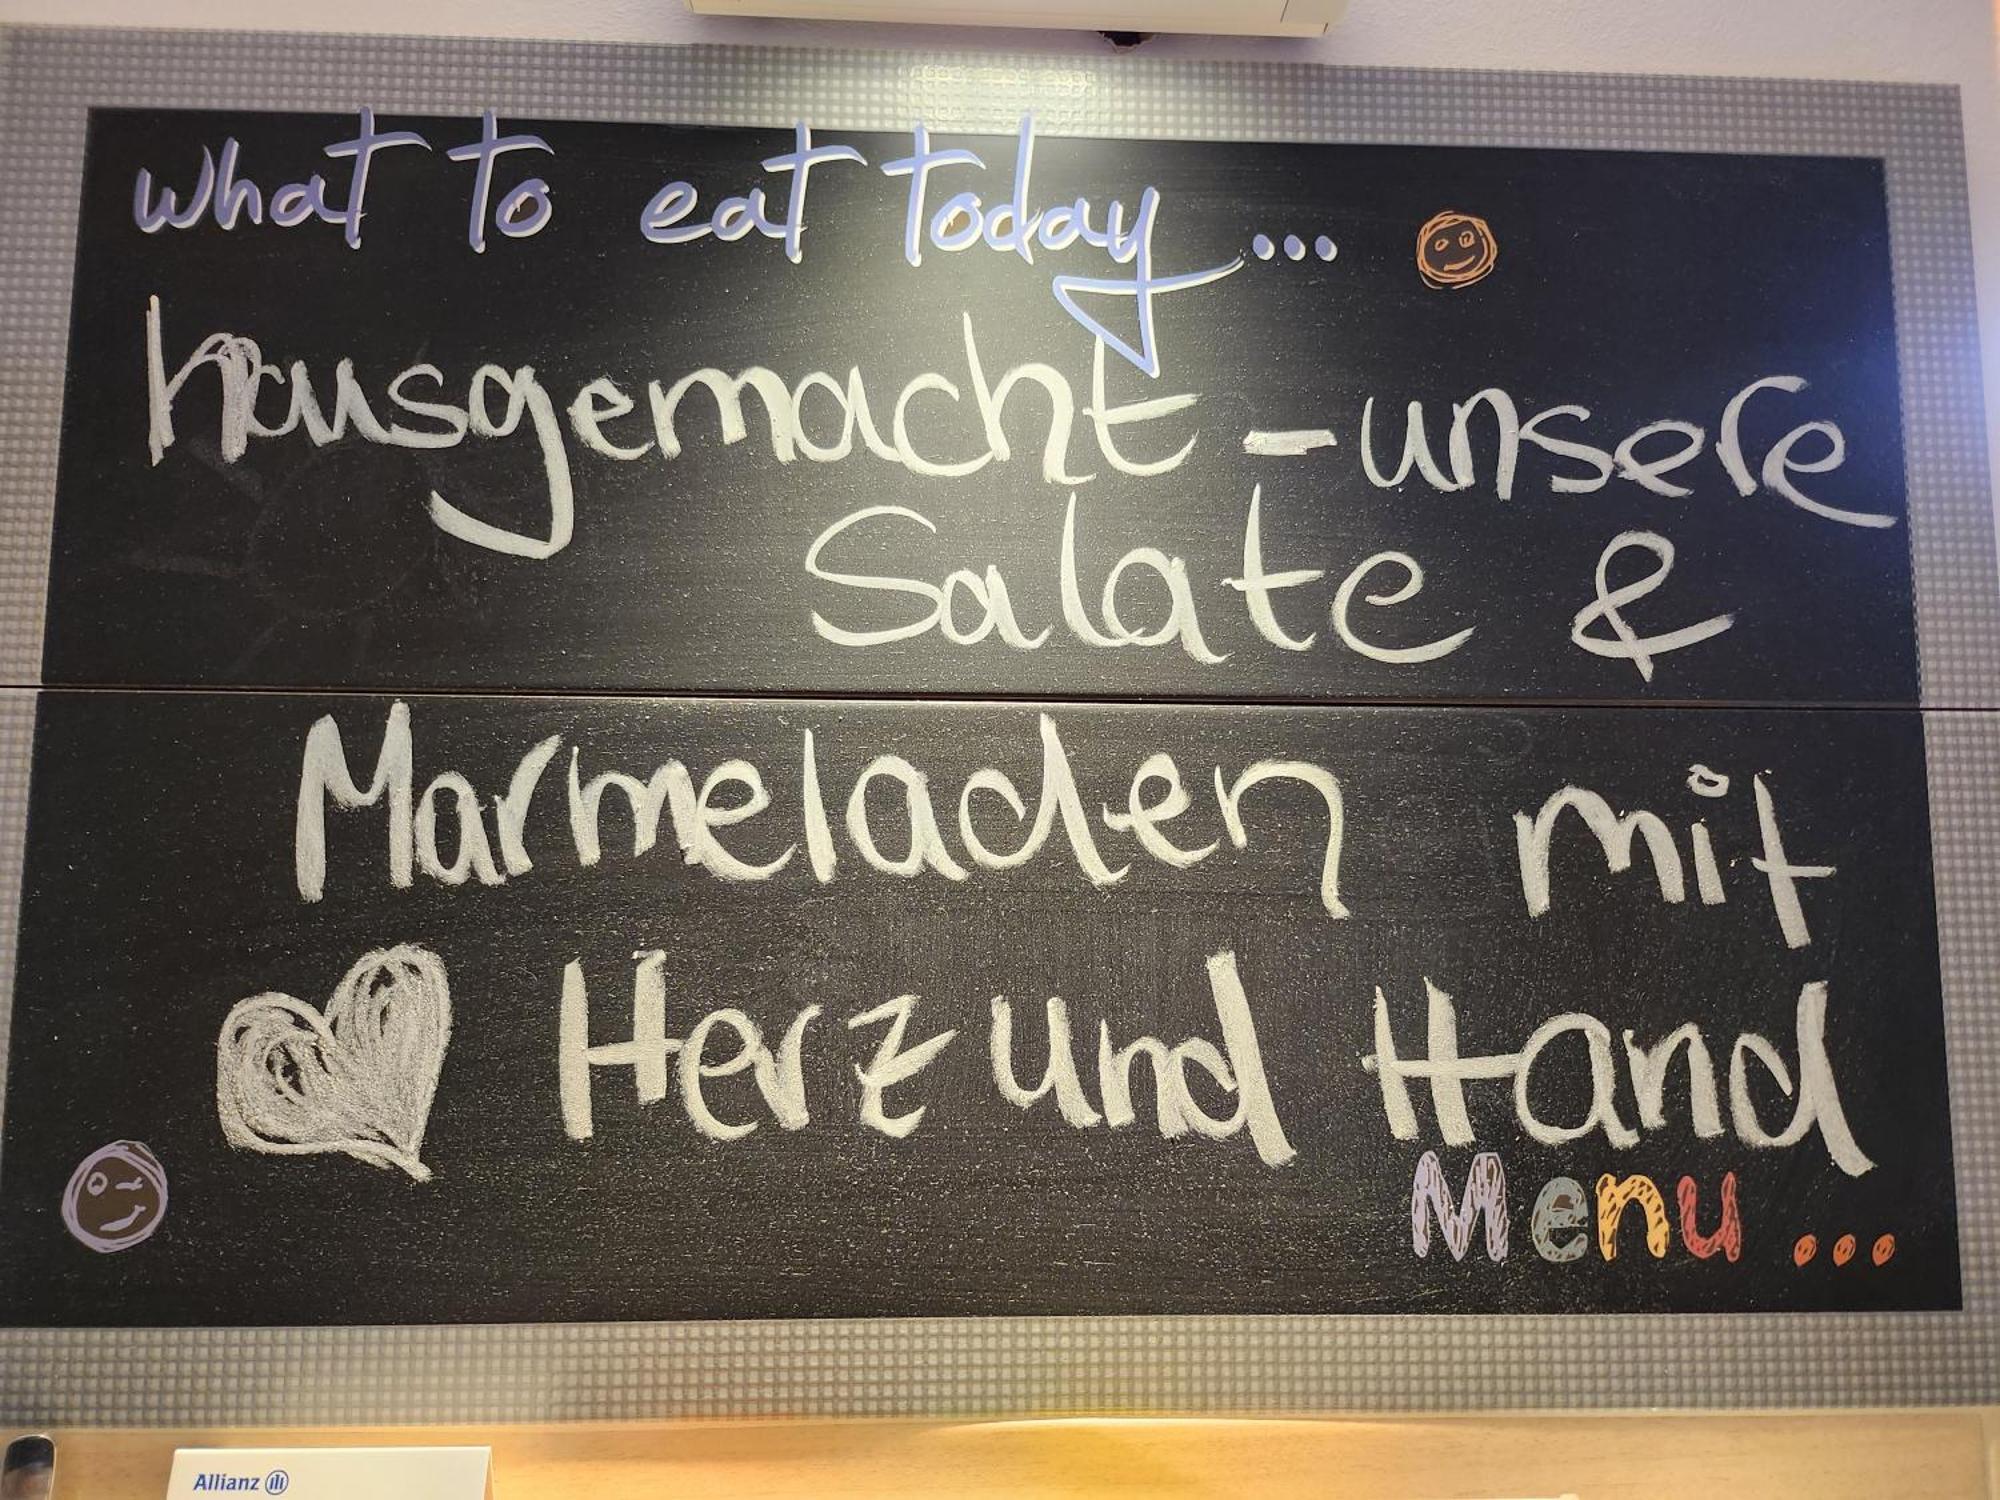 what to eat today...
hausgemacht - unsere
Salate &
Marmeladen mit
Herz und Hand
Menu...
Allianz